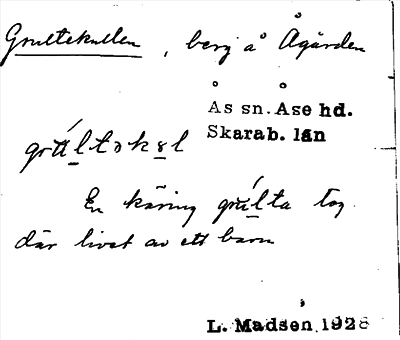 Grultekullen, berg å Ågården
Ås sn. Åse hd.
Skarab. län
grùltəkul
En käring grùlta tog
där livet av ett barn
L. Madsén 1928